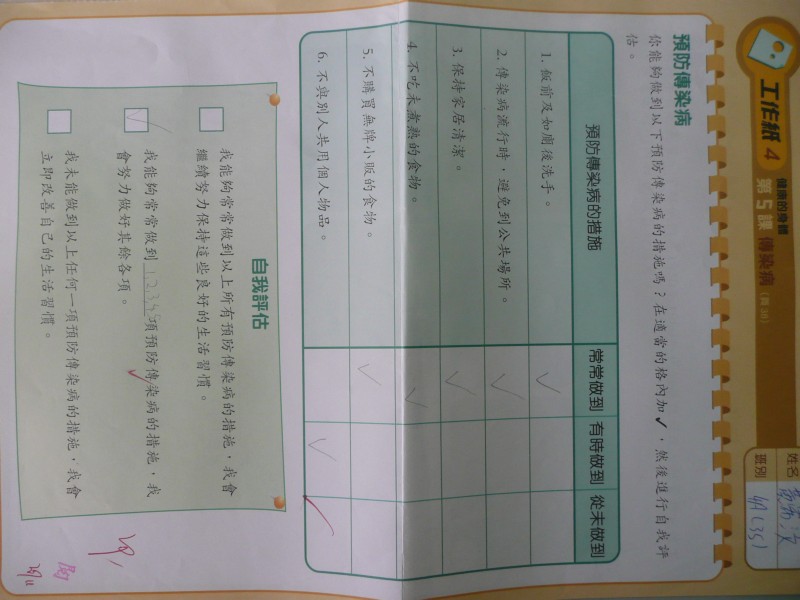 工作紙 4
健康的身體
第 5 課 傳染病 (頁 30)
姓名
班別 4A(35)
預防傳染病
你能夠做到以下預防傳染病的措施嗎？在適當的格內加✓，然後進行自我評
估。
預防傳染病的措施 常常做到 有時做到 從未做到
1. 飯前及如廁後洗手。 ✓
2. 傳染病流行時，避免到公共場所。 ✓
3. 保持家居清潔。 ✓
4. 不吃未煮熟的食物。 ✓
5. 不購買無牌小販的食物。 ✓
6. 不與別人共用個人物品。 ✓
自我評估
我能夠常常做到以上所有預防傳染病的措施，我會
繼續努力保持這些良好的生活習慣。
✓ 我能夠常常做到 12345 項預防傳染病的措施，我
會努力做好其餘各項。
我未能做到以上任何一項預防傳染病的措施，我會
立即改善自己的生活習慣。